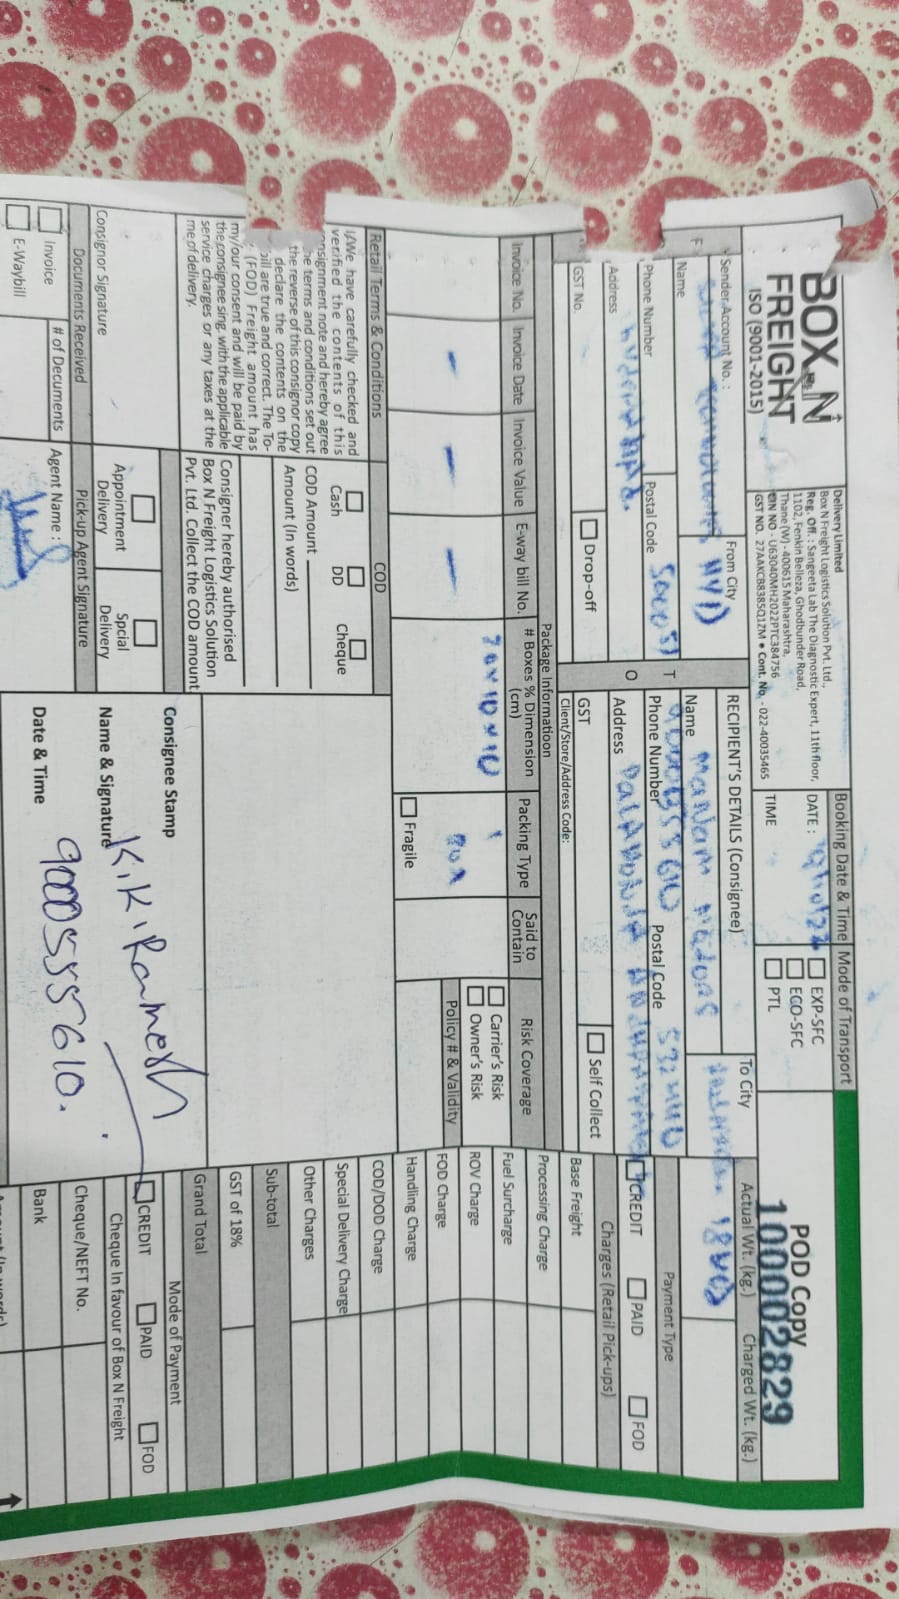 BOX N FREIGHT
ISO (9001-2015)
Delivery Limited
Box N Freight Logistics Solution Pvt. Ltd.,
Reg. Off. : Sangeeta Lab The Diagnostic Expert, 11th floor,
1102, Fenkin Belleza, Ghodbunder Road,
Thane (W) - 400615 Maharashtra,
CIN NO - U63040MH2022PTC384756
GST NO. 27AAKCB8385Q1ZM • Cont. No. - 022-40035465
Booking Date & Time
DATE :
TIME
Mode of Transport
EXP-SFC
ECO-SFC
PTL
POD Copy
100002829
Sender Account No. :
From City
HYD
Name
Phone Number
Postal Code 500051
Address
GST No.
Drop-off
T
O
RECIPIENT'S DETAILS (Consignee)
To City
Name MANAM MOTORS
Phone Number
Postal Code 532440
Address
GST
Self Collect
Client/Store/Address Code:
Actual Wt. (kg.)
Charged Wt. (kg.)
Payment Type
CREDIT
PAID
FOD
Charges (Retail Pick-ups)
Base Freight
Processing Charge
Fuel Surcharge
ROV Charge
FOD Charge
Handling Charge
COD/DOD Charge
Special Delivery Charge
Other Charges
Sub-total
GST of 18%
Grand Total
Mode of Payment
CREDIT
PAID
FOD
Cheque In favour of Box N Freight
Cheque/NEFT No.
Bank
Amount (In words)
Package Informatioon
Invoice No.
Invoice Date
Invoice Value
E-way bill No.
# Boxes % Dimension (cm)
Packing Type
Said to Contain
Risk Coverage
- - -
1
BOX
Carrier's Risk
Owner's Risk
Policy # & Validity
Fragile
Retail Terms & Conditions
I/We have carefully checked and
verified the contents of this
consignment note and hereby agree
the terms and conditions set out
the reverse of this consignor copy
declare the contents on the
bill are true and correct. The To-
(FOD) Freight amount has
my/our consent and will be paid by
the consignee sing. with the applicable
service charges or any taxes at the
me of delivery.
Consignor Signature
COD
Cash
DD
Cheque
COD Amount
Amount (In words)
Consigner hereby authorised
Box N Freight Logistics Solution
Pvt. Ltd. Collect the COD amount
Appointment Delivery
Spcial Delivery
Documents Received
Invoice
E-Waybill
# of Documents
Pick-up Agent Signature
Agent Name :
Consignee Stamp
Name & Signature K.K.Ramesh
Date & Time 9000555610.